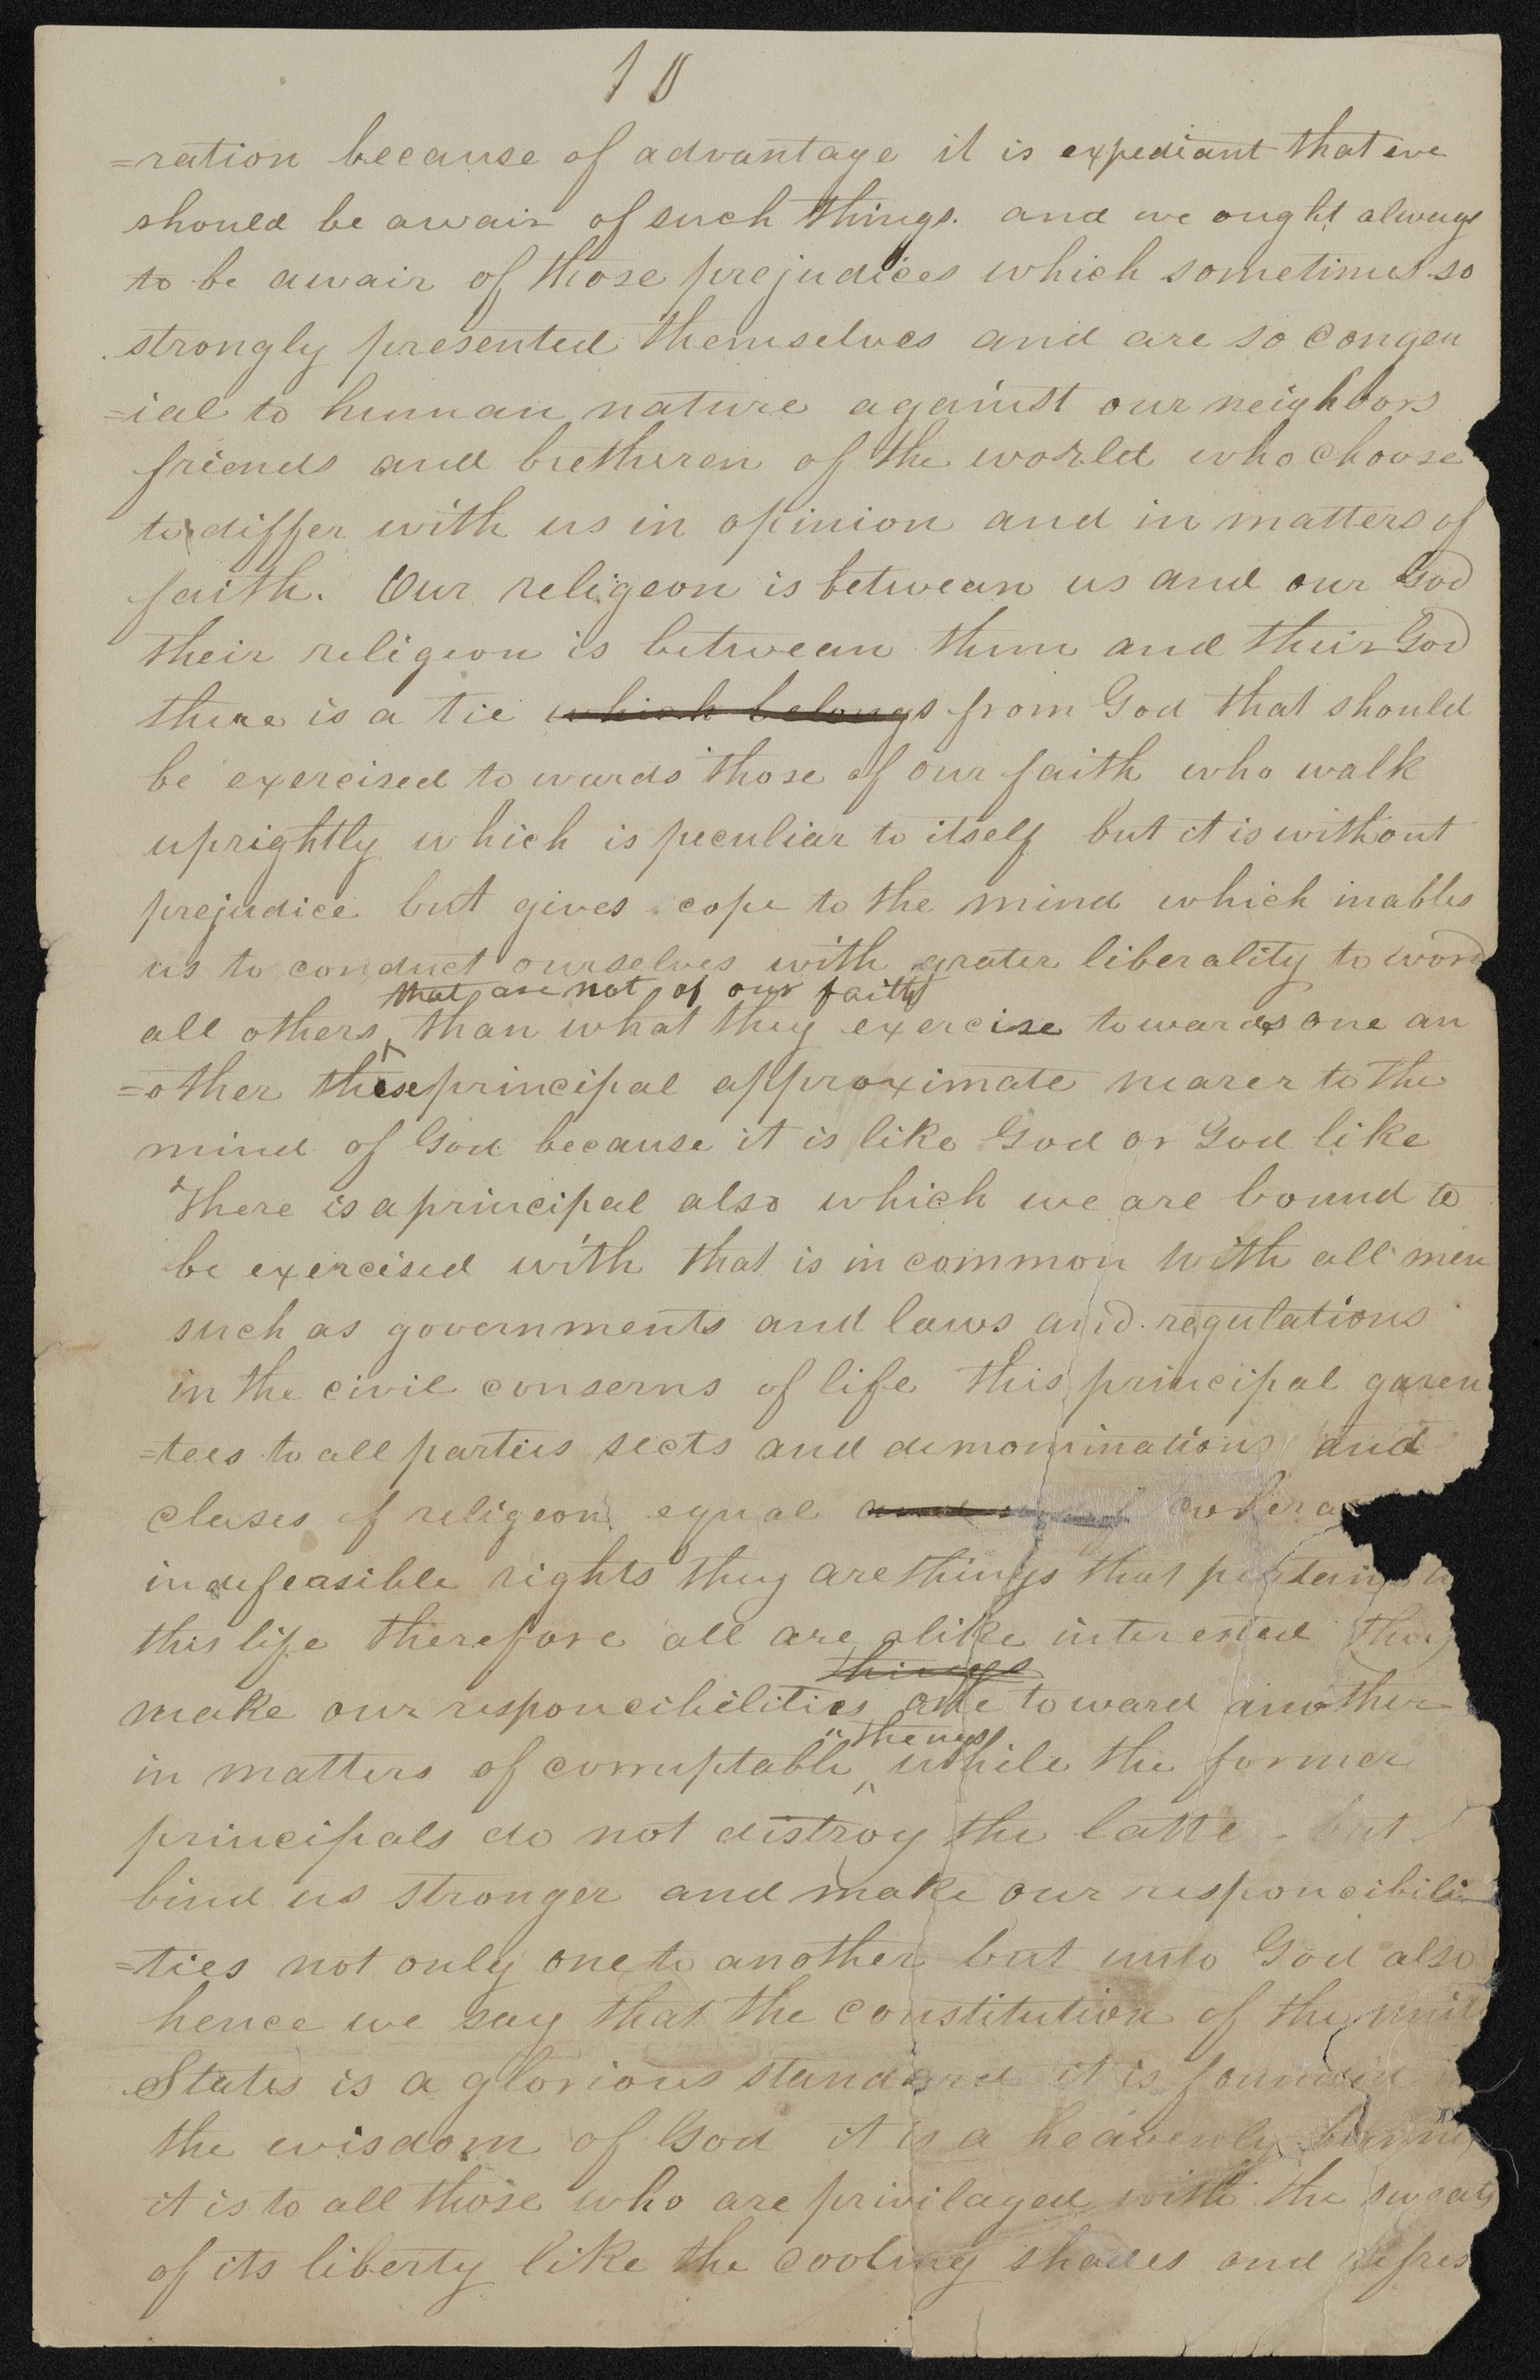 10
=ration because of advantage it is expediant that we
should be awair of such things. and we ought always
to be awair of those prejudices which sometimes so
strongly presented themselves and are so congen
=ial to human nature against our neighbors
friends and bretheren of the world who choose
to differ with us in opinion and in matters of
faith. Our religeon is betwean us and our God
their religeon is betwean them and their God
there is a tie which belongs from God that should
be exercised to wards those of our faith who walk
uprightly which is peculiar to itself but it is without
prejudice but gives scope to the mind which inables
us to conduct ourselves with grater liberality to word
that are not of our faith
all others, than what they exercise towards one an
=other these principal approximate nearer to the
mind of God because it is like God or God like
There is a principal also which we are bound to
be exercised with that is in common with all men
such as governments and laws and regulations
in the civil conserns of life this principal garen
=tees to all parties sects and demominations and
clases of religeon equal
indefeasible rights they are things that pertain
this life therefore all are alike interested they
things
make our responcibilities one toward another
things
in matters of corruptable while the former
principals do not distroy the latte but
bind us stronger and make our responcibili
=ties not only one to another but unto God also
hence we say that the constitution of the unit
States is a glorious standard it is founded
the wisdom of God it is a heavenly banner
it is to all those who are privilaged with the sweats
of its liberty like the cooling shades and refres